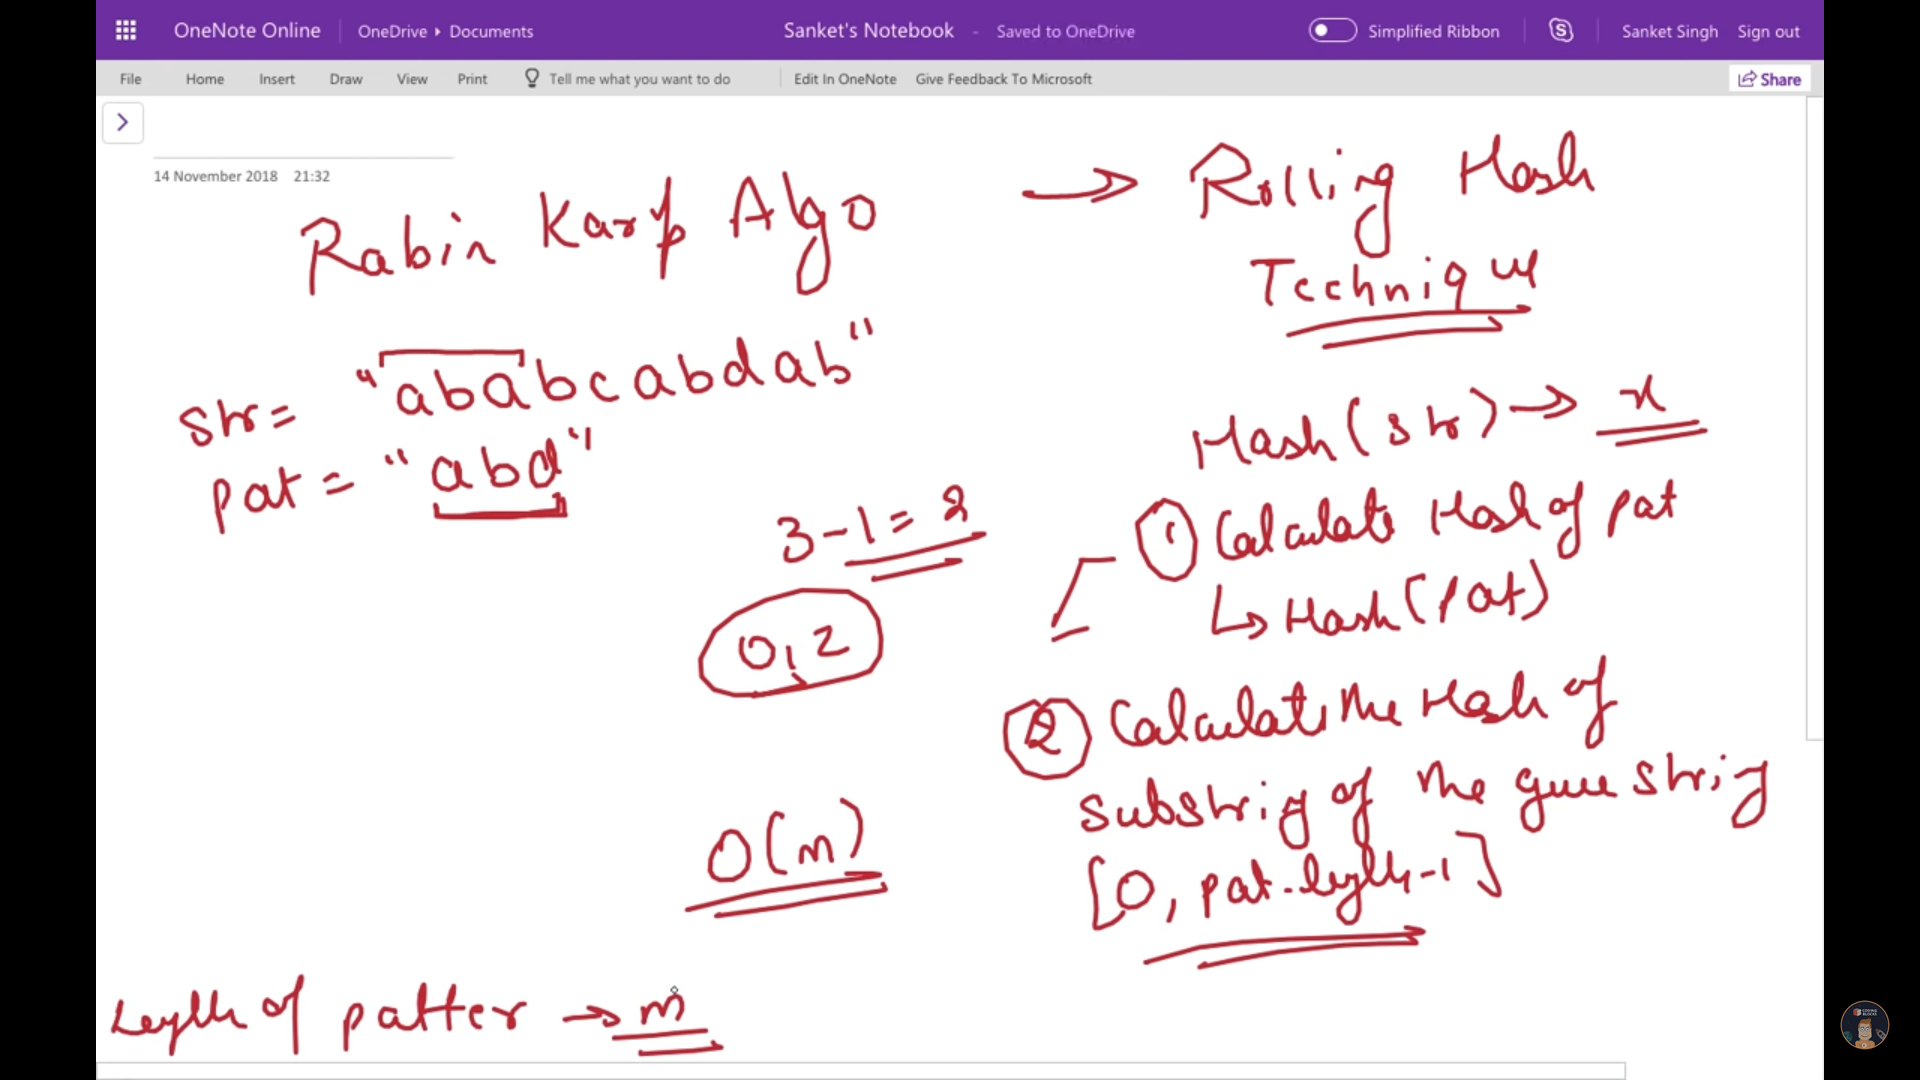 OneNote Online OneDrive ▸ Documents Sanket's Notebook - Saved to OneDrive Simplified Ribbon Sanket Singh Sign out
File Home Insert Draw View Print Tell me what you want to do Edit In OneNote Give Feedback To Microsoft Share
14 November 2018 21:32
Rabin Karp Algo → Rolling Hash
Technique
str= "ababcabdab"
pat = "abd"
3-1=2
0,2
O(m)
Length of patter → m
Hash(str) → x
① Calculate Hash of pat
↳ Hash(pat)
② Calculate the Hash of
substrig of the strig
[0, pat-length-1]